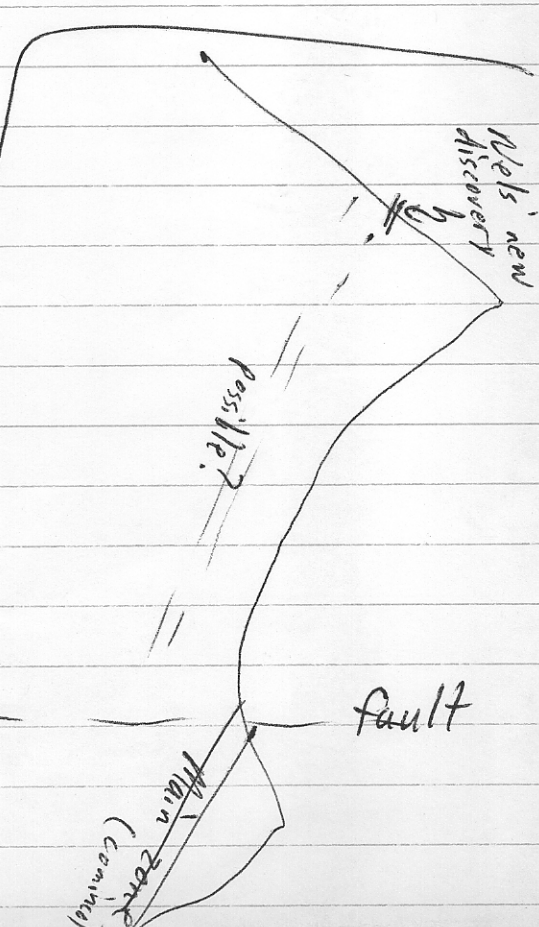 Nels' new
discovery
possible?
fault
Main zone
(Cominco)